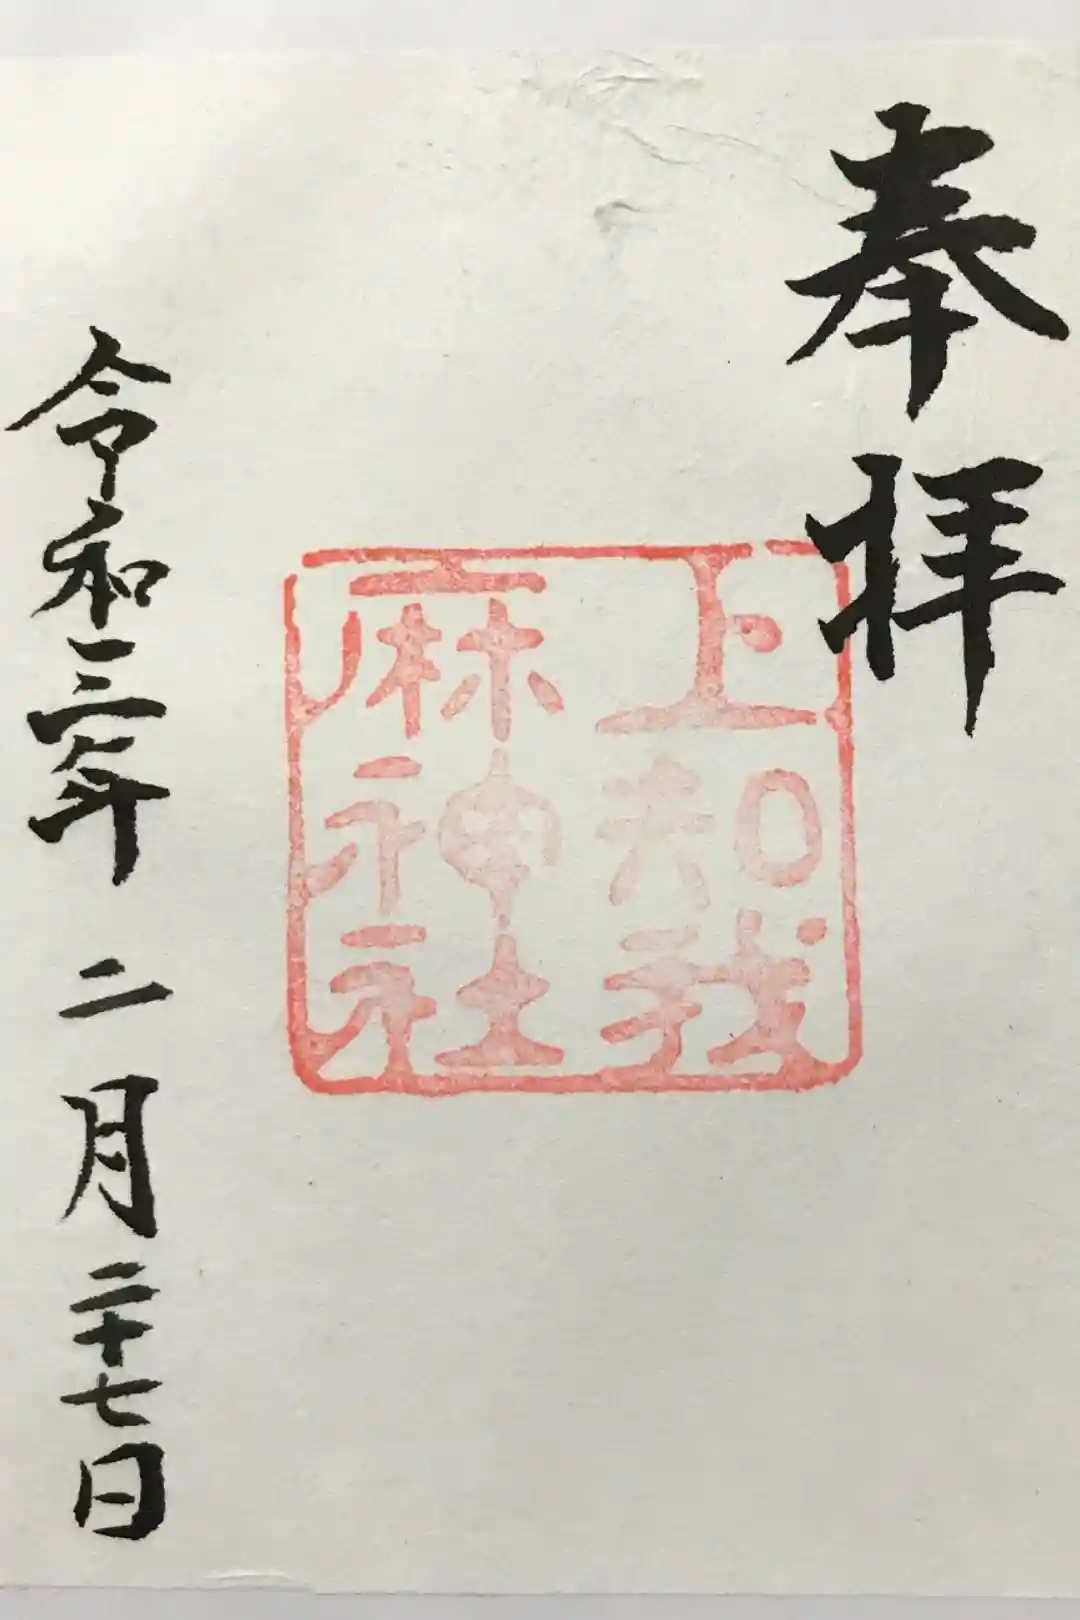 奉拝
上知我
麻神社
令和三年二月二十七日